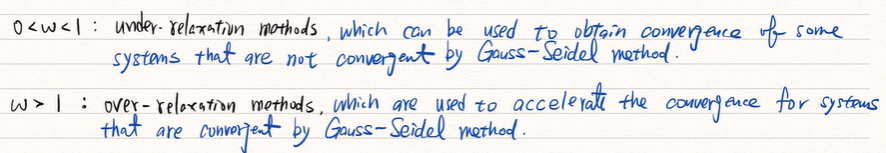 0<w<1 : under-relaxation methods, which can be used to obtain convergence of some
systems that are not convergent by Gauss-Seidel method.
w > 1 : over-relaxation methods, which are used to accelerate the convergence for systems
that are convergent by Gauss-Seidel method.